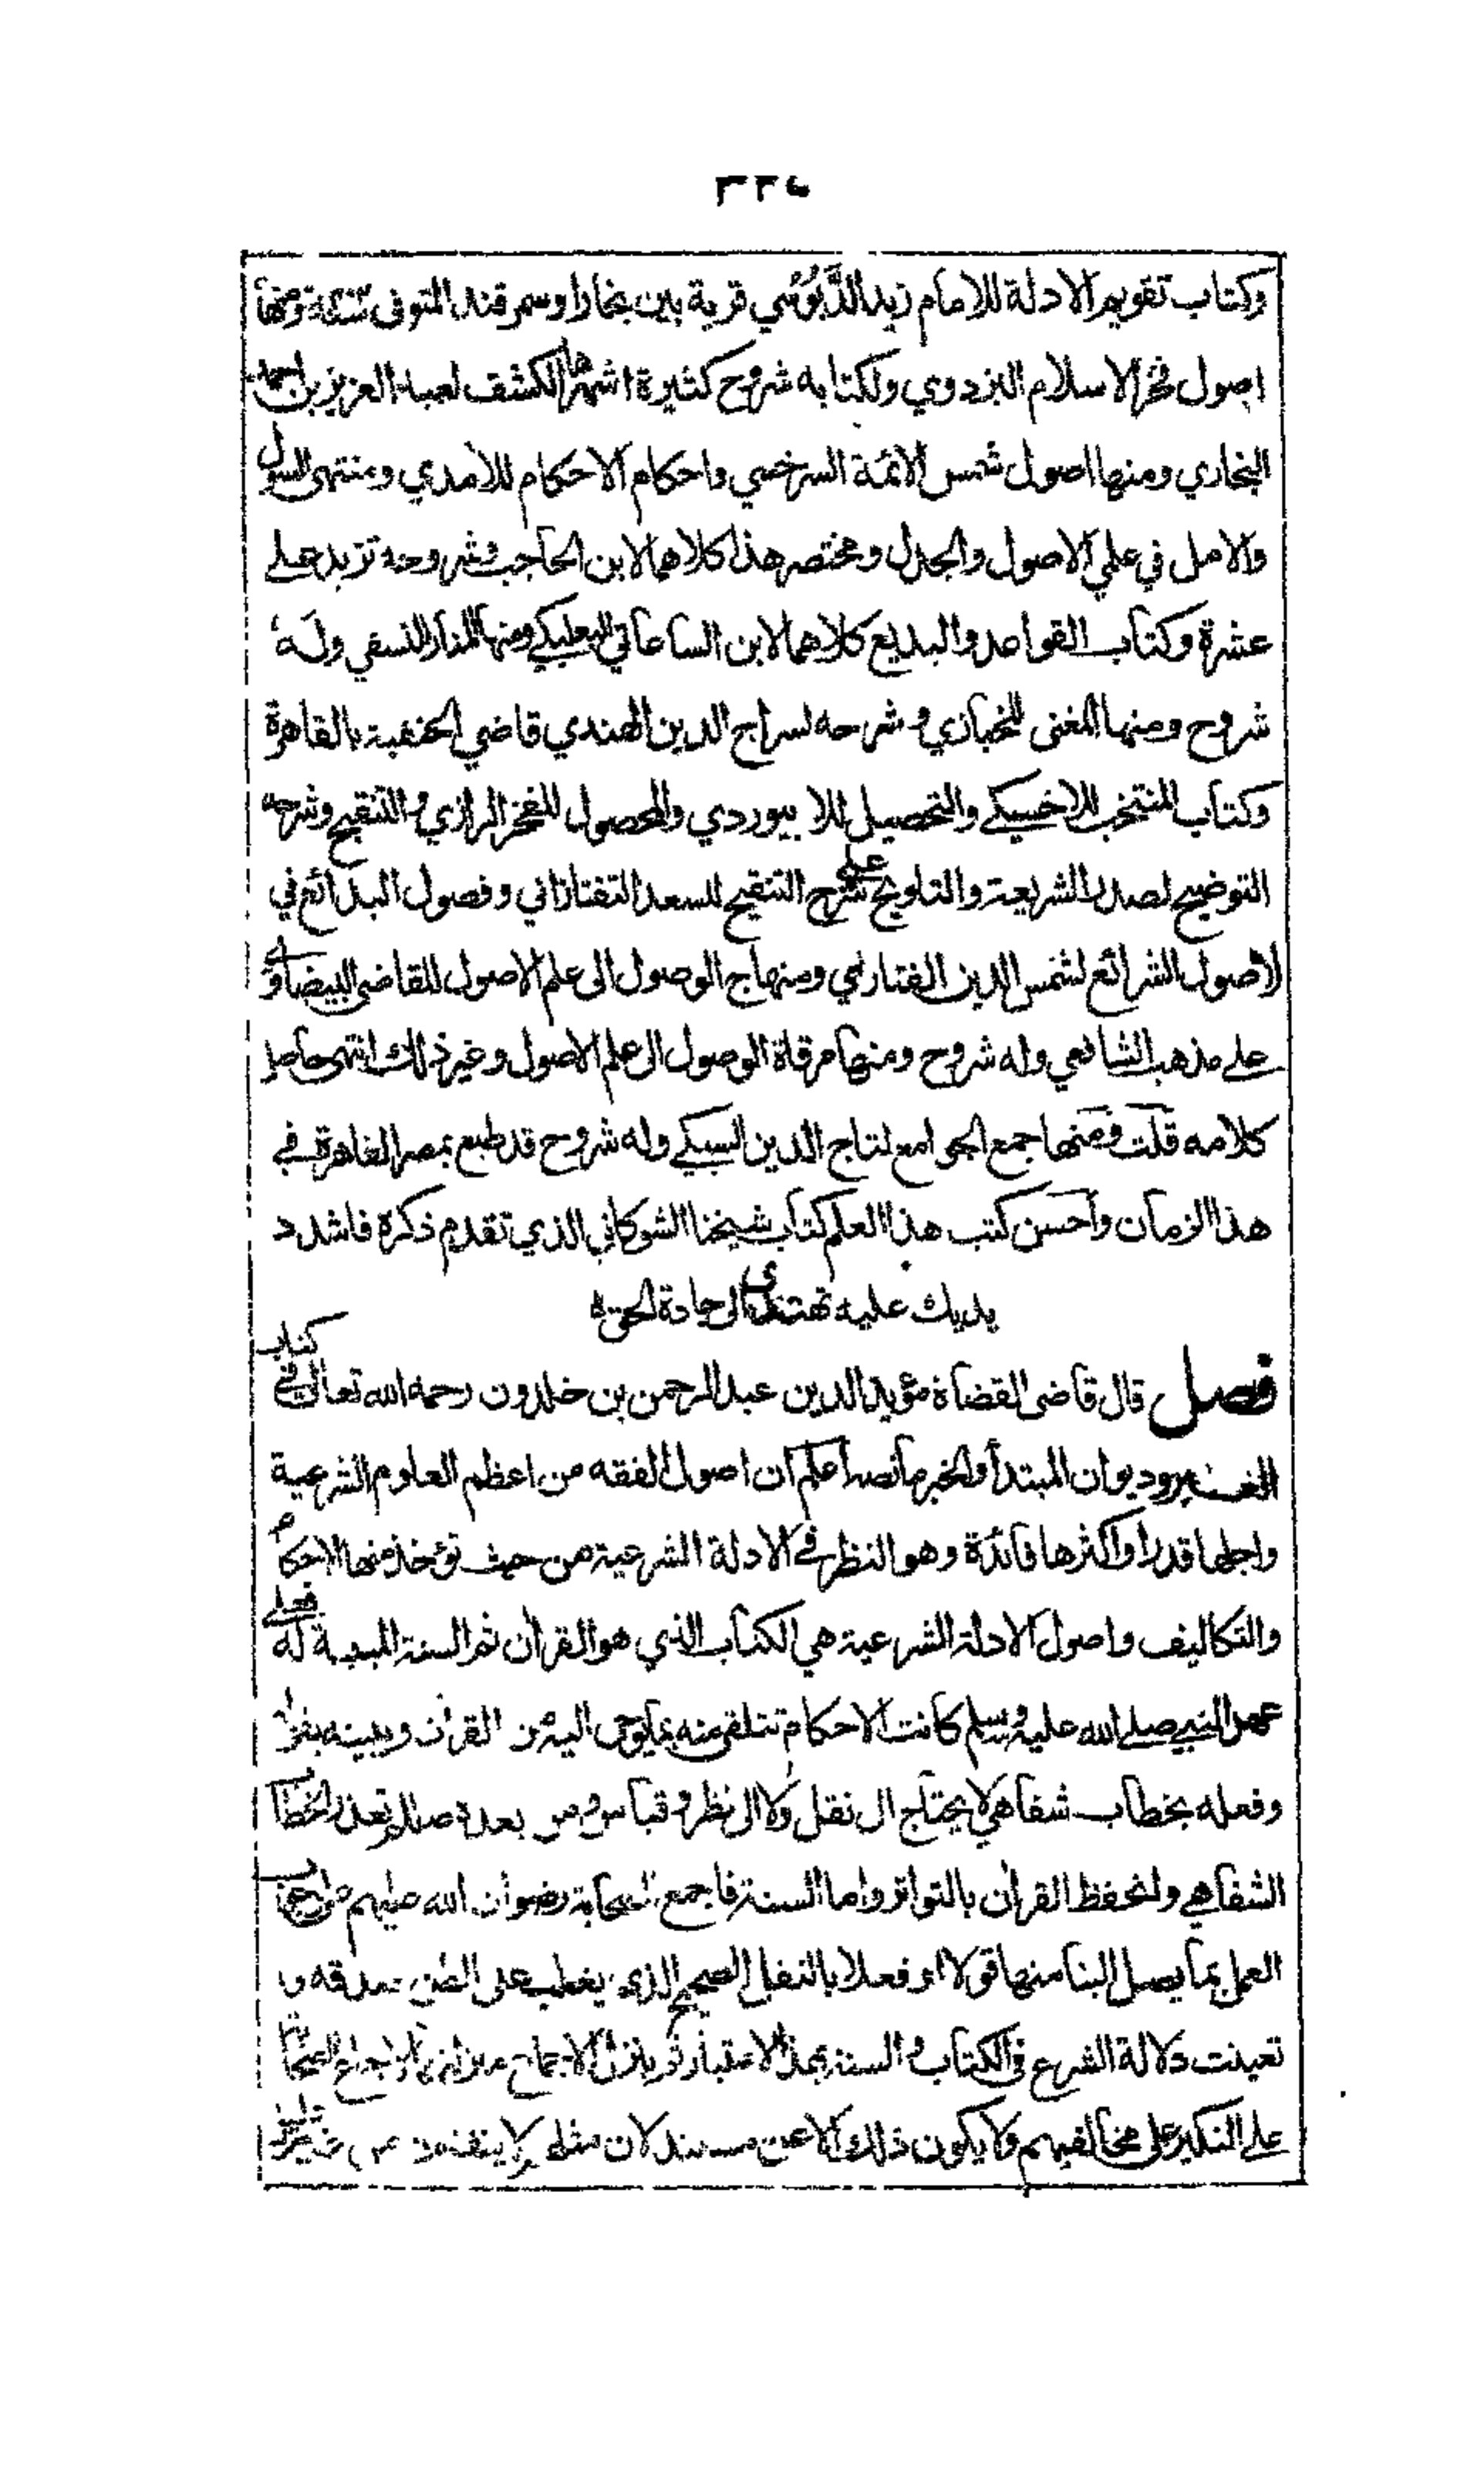 وكتاب تقويم الادلة للامام زيد الدَّبُوْسي قرية بين بخارا وسمرقند المتوفى سنة ومنها
اصول فخر الاسلام البزدوي ولكتابه شروح كثيرة اشهرها الكشف لعبد العزيز بن احمد
البخاري ومنها اصول شمس الائمة السرخسي واحكام الاحكام للآمدي ومنتهى السول
والامل في علمي الاصول والجدل ومختصر هذا كلاهما لابن الحاجب وشروحه تزيد على
عشرة وكتاب القواعد والبديع كلاهما لابن الساعاتي البعلبكي ومنها المنار للنسفي وله
شروح ومنها المغنى للخبازي وشرحه لسراج الدين الهندي قاضي الحنفية بالقاهرة
وكتاب المنتخب للاخسيكي والتحصيل للابيوردي والمحصول للفخر الرازي والتنقيح وشرحه
التوضيح لصدر الشريعة والتلويح على شرح التنقيح للسعد التفتازاني وفصول البدائع في
لاصول الشرائع لشمس الدين الفناري ومنهاج الوصول الى علم الاصول للقاضي البيضاوي
على مذهب الشافعي وله شروح ومنها مرقاة الوصول الى علم الاصول وغير ذلك انتهى حاصل
كلامه قلت ومنها جمع الجوامع لتاج الدين السبكي وله شروح قد طبع بمصر القاهرة في
هذا الزمان وأحسن كتب هذا العلم كتاب شيخنا الشوكاني الذي تقدم ذكره فاشدد
يديك عليه تهتدى الى جادة الحق
فصل قال قاضى القضاة مؤيد الدين عبد الرحمن بن خلدون رحمه الله تعالى في كتاب
العبر وديوان المبتدأ والخبر ما نصه أعلم ان اصول الفقه من اعظم العلوم الشرعية
واجلها قدرا واكثرها فائدة وهو النظر في الادلة الشرعية من حيث تؤخذ منها الاحكام
والتكاليف واصول الادلة الشرعية هي الكتاب الذي هو القرأن ثم السنة المبينة له فعلى
عهد النبي صلى الله عليه وسلم كانت الاحكام تتلقى منه بما يوحى اليه من القرأن ويبينه بقوله
وفعله بخطاب شفاهي لا يحتاج الى نقل ولا الى نظر وقياس ومن بعده صللم تعذر الخطاب
الشفاهي وانحفظ القرأن بالتواتر واما السنة فاجمع الصحابة رضوان الله عليهم على وجوب
العمل بما يصل الينا منها قولا او فعلا بالنقل الصحيح الذي يغلب على الظن صدقه و
تعينت دلالة الشرع في الكتاب والسنة بهذا الاعتبار ثم ينزل الاجماع منزلتهما لاجماع الصحابة
على النكير على مخالفيهم ولا يكون ذلك الا عن مستند لان مثلهم لا يتفقون من غير دليل